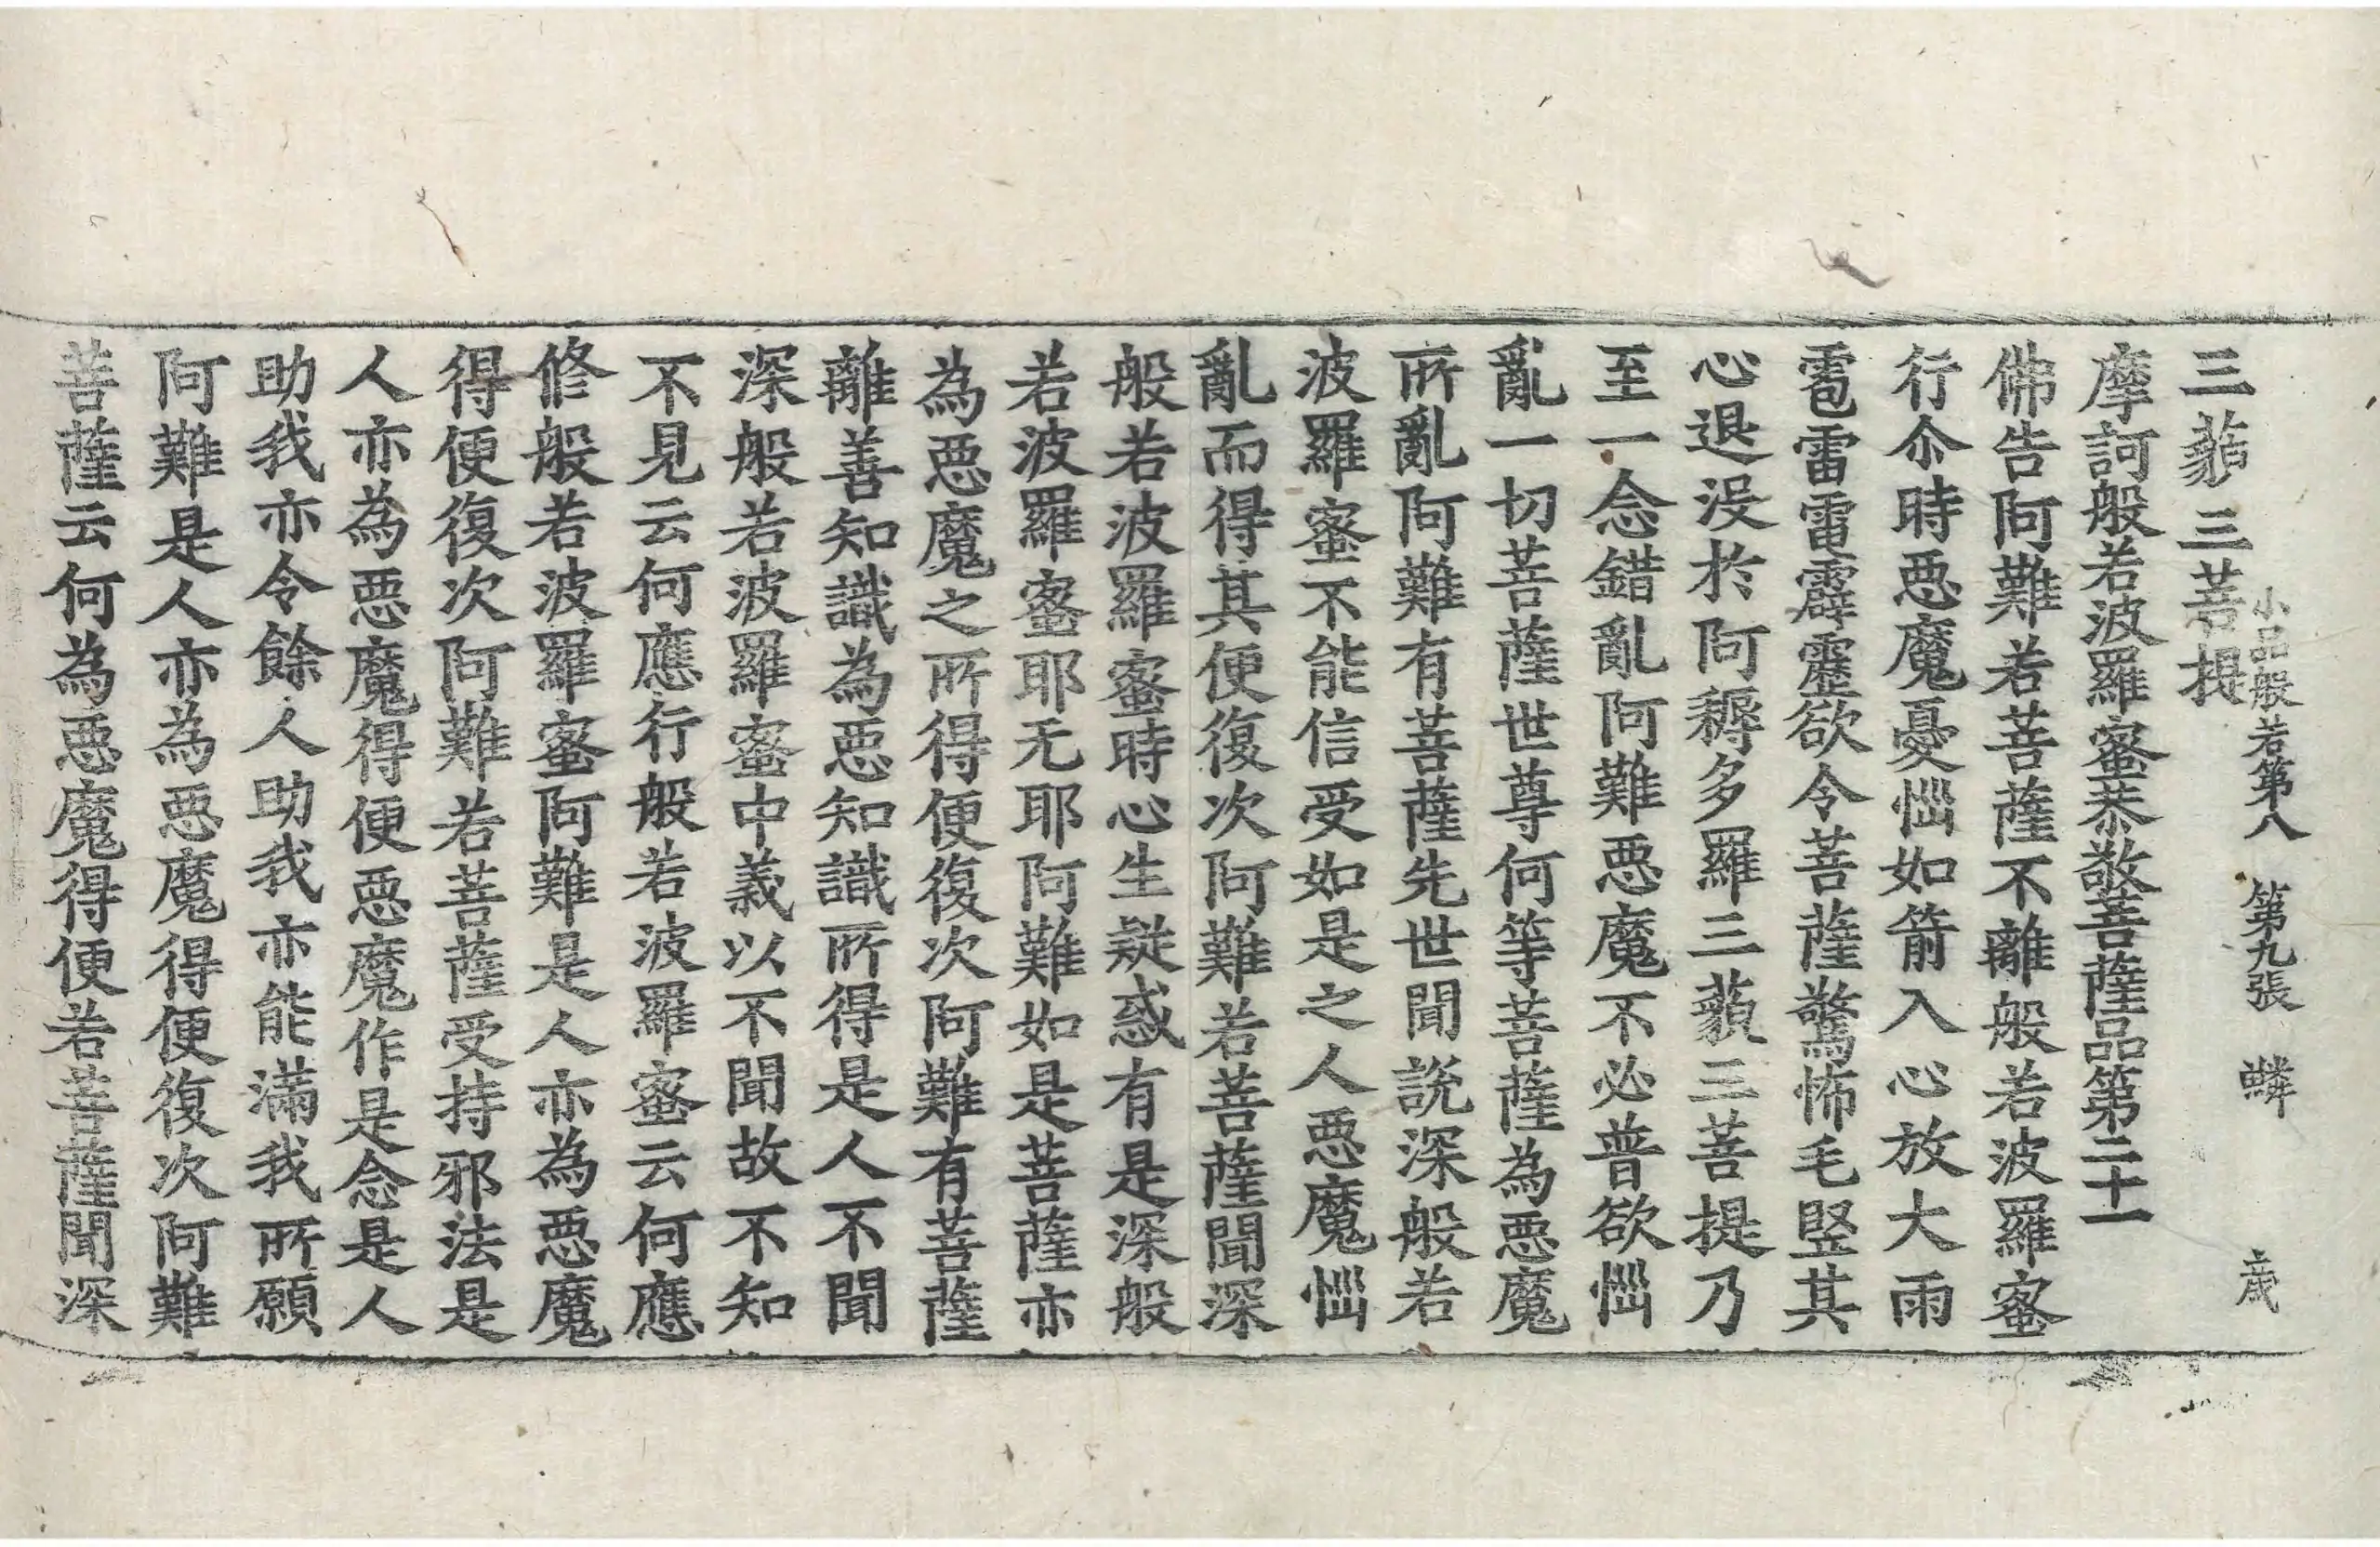 小品般若第八 第九張 鱗 歲
三藐三菩提
摩訶般若波羅蜜恭敬菩薩品第二十一
佛告阿難若菩薩不離般若波羅蜜
行尒時惡魔憂惱如箭入心放大雨
雹雷電霹靂欲令菩薩驚怖毛竪其
心退没於阿耨多羅三藐三菩提乃
至一念錯亂阿難惡魔不必普欲惱
亂一切菩薩世尊何等菩薩為惡魔
所亂阿難有菩薩先世聞說深般若
波羅蜜不能信受如是之人惡魔惱
亂而得其便復次阿難若菩薩聞深
般若波羅蜜時心生疑惑有是深般
若波羅蜜耶无耶阿難如是菩薩亦
為惡魔之所得便復次阿難有菩薩
離善知識為惡知識所得是人不聞
深般若波羅蜜中義以不聞故不知
不見云何應行般若波羅蜜云何應
修般若波羅蜜阿難是人亦為惡魔
得便復次阿難若菩薩受持邪法是
人亦為惡魔得便惡魔作是念是人
助我亦令餘人助我亦能滿我所願
阿難是人亦為惡魔得便復次阿難
菩薩云何為惡魔得便若菩薩聞深